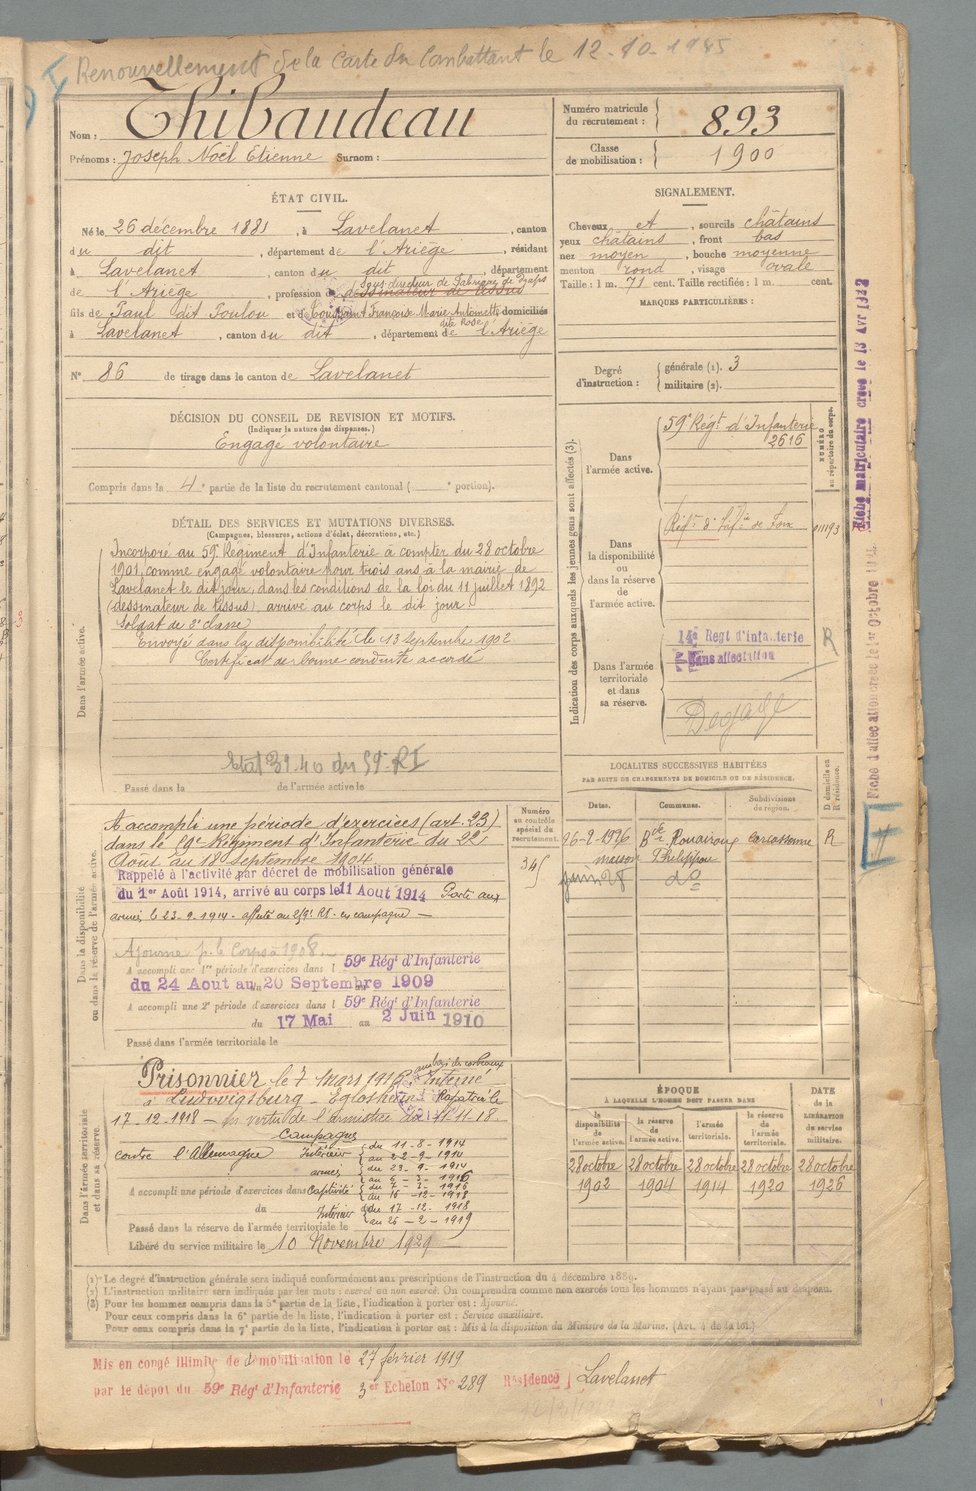 Renouvellement de la Carte du Combattant le 12-10-1945
Nom : Thibaudeau
Prénoms : Joseph Noël Etienne Surnom :
Numéro matricule du recrutement : 893
Classe de mobilisation : 1900
ÉTAT CIVIL.
Né le 26 décembre 1881, à Lavelanet, canton
du dit, département de l'Ariège, résidant
à Lavelanet, canton du dit, département
sous-directeur de Fabrique de Draps
de l'Ariège, profession de dessinateur de tissus
fils de Paul dit Poulou et de Françoise Marie Antoinette domiciliés
dite Rose
à Lavelanet, canton du dit, département de l'Ariège
N° 86 de tirage dans le canton de Lavelanet
SIGNALEMENT.
Cheveux et, sourcils châtains
yeux châtains, front bas
nez moyen, bouche moyenne
menton rond, visage ovale
Taille : 1 m. 71 cent. Taille rectifiée : 1 m. cent.
MARQUES PARTICULIÈRES :
Degré d'instruction : générale (1). 3
militaire (2).
DÉCISION DU CONSEIL DE REVISION ET MOTIFS.
(Indiquer la nature des dispenses.)
Engagé volontaire
Compris dans la 4e partie de la liste du recrutement cantonal ( e portion).
DÉTAIL DES SERVICES ET MUTATIONS DIVERSES.
(Campagnes, blessures, actions d'éclat, décorations, etc.)
Dans l'armée active.
Incorporé au 59e Régiment d'Infanterie à compter du 28 octobre
1901, comme engagé volontaire pour trois ans à la mairie de
Lavelanet le dit jour, dans les conditions de la loi du 11 juillet 1892
(dessinateur de tissus) arrivé au corps le dit jour
Soldat de 2e classe
Envoyé dans la disponibilité le 13 Septembre 1902
Certificat de bonne conduite accordé
Etat 39.40 du 59e RI
Passé dans la de l'armée active le
Indication des corps auxquels les jeunes gens sont affectés (3).
NUMÉRO au répertoire du corps.
Dans l'armée active.
59e Régt d'Infanterie
2616
Dans la disponibilité ou dans la réserve de l'armée active.
Régt d'Inf.ie de Foix
01193
Dans l'armée territoriale et dans sa réserve.
14e Regt d'infanterie
Sans affectation
R
Dégagé
Fiche matriculaire créée le 13 Avr 1922
LOCALITES SUCCESSIVES HABITÉES
PAR SUITE DE CHANGEMENTS DE DOMICILE OU DE RÉSIDENCE.
D domicile ou R résidence.
Dates. Communes. Subdivisions de région.
26-2-1926 Bde Rouairoux Carcassonne R
maison Philippou
juin 28 do
Dans la disponibilité ou dans la réserve de l'armée active.
Numéro au contrôle spécial du recrutement.
345
A accompli une période d'exercices (art. 23)
dans le 59e Régiment d'Infanterie du 22
Aout au 18 Septembre 1904
Rappelé à l'activité par décret de mobilisation générale
du 1er Août 1914, arrivé au corps le 11 Aout 1914 Parti aux
armées le 23-9-1914 - affecté au 259e RI - en campagne —
Ajourné p. le Corps à 1908
A accompli une 1re période d'exercices dans l 59e Régt d'Infanterie
du 24 Aout au 20 Septembre 1909
A accompli une 2e période d'exercices dans l 59e Régt d'Infanterie
du 17 Mai au 2 Juin 1910
Passé dans l'armée territoriale le
Dans l'armée territoriale et dans sa réserve.
au bois des corbeaux
Prisonnier le 7 mars 1916. Interné
à Ludwigsburg - Eglosheim Rapatrié le
17-12-1918 — en vertu de l'armistice du 11-11-18.
Campagnes
contre l'Allemagne Intérieur { du 11-8-1914
au 22-9-1914
armées { du 23-9-1914
au 6-3-1916
A accompli une période d'exercices dans Captivité { du 7-3-1916
au 16-12-1918
du Intérieur { du 17-12-1918
au 26-2-1919
Passé dans la réserve de l'armée territoriale le
Libéré du service militaire le 10 Novembre 1929
ÉPOQUE
À LAQUELLE L'HOMME DOIT PASSER DANS
la disponibilité de l'armée active. la réserve de l'armée active. l'armée territoriale. la réserve de l'armée territoriale. DATE de la LIBÉRATION du service militaire.
28 octobre 28 octobre 28 octobre 28 octobre 28 octobre
1902 1904 1914 1920 1926
(1) Le degré d'instruction générale sera indiqué conformément aux prescriptions de l'instruction du 4 décembre 1889.
(2) L'instruction militaire sera indiquée par les mots : exercé ou non exercé. On comprendra comme non exercés tous les hommes n'ayant pas passé au drapeau.
(3) Pour les hommes compris dans la 5e partie de la liste, l'indication à porter est : Ajourné.
Pour ceux compris dans la 6e partie de la liste, l'indication à porter est : Service auxiliaire.
Pour ceux compris dans la 7e partie de la liste, l'indication à porter est : Mis à la disposition du Ministre de la Marine. (Art. 4 de la loi.)
Mis en congé illimité de démobilisation le 27 février 1919
par le dépôt du 59e Régt d'Infanterie 3er Echelon N° 289 Résidence Lavelanet